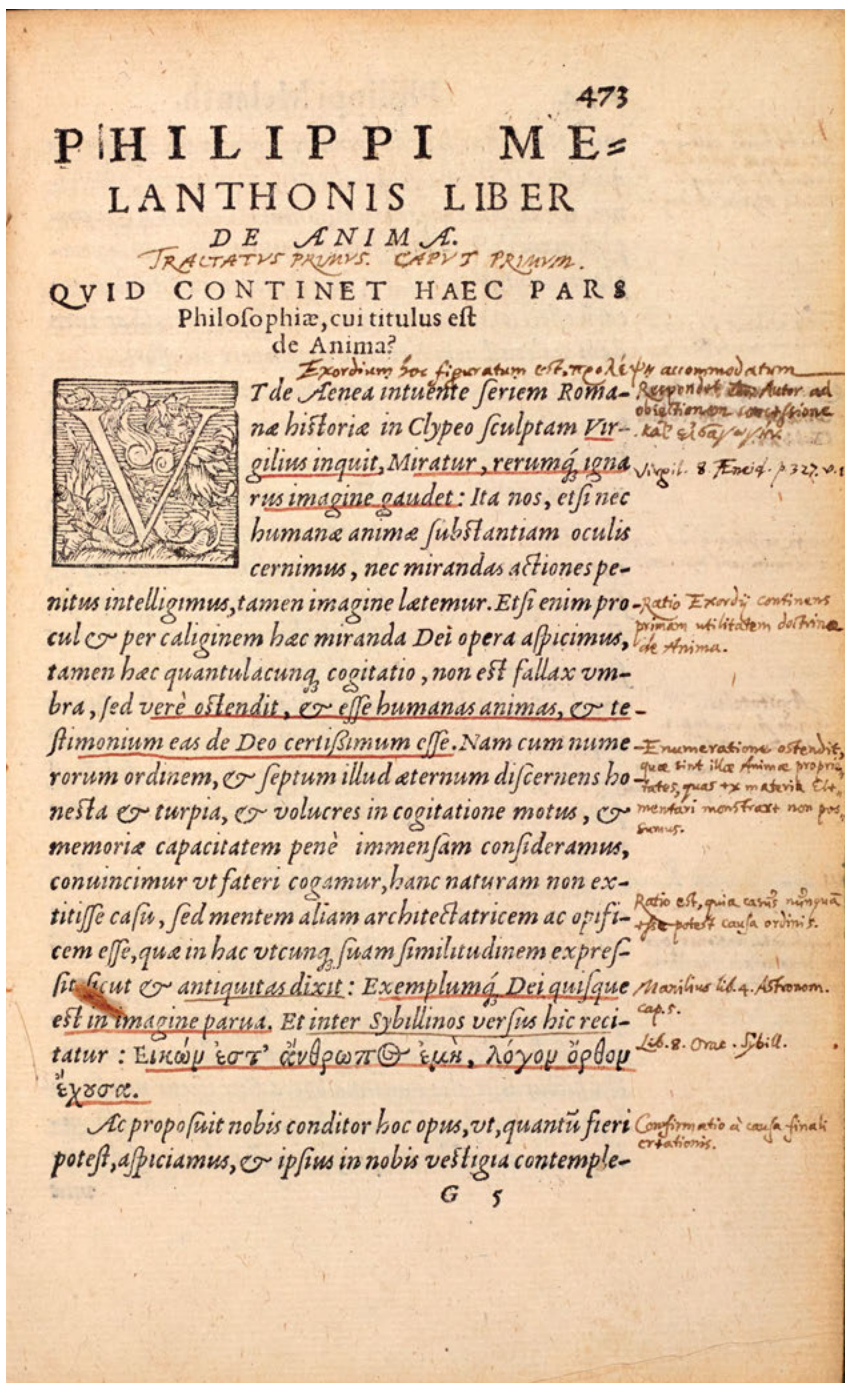 473
PHILIPPI ME=
LANTHONIS LIBER
DE ANIMA.
TRACTATVS PRIMVS. CAPVT PRIMVM.
QVID CONTINET HAEC PARS
Philoſophiæ, cui titulus est
de Anima?
Exordium hoc figuratum est. προλέψει accommodatum
VT de Aenea intuente ſeriem Roma-
næ hiſtoriæ in Clypeo ſculptam Vir-
gilius inquit, Miratur, rerumq́; igna
rus imagine gaudet: Ita nos, etſi nec
humanæ animæ ſubſtantiam oculis
cernimus, nec mirandas actiones pe-
nitus intelligimus, tamen imagine lætemur. Etſi enim pro-
cul & per caliginem hæc miranda Dei opera aſpicimus,
tamen hæc quantulacunq; cogitatio, non eſt fallax vm-
bra, ſed verè oſtendit, & eſſe humanas animas, & te-
ſtimonium eas de Deo certiſsimum eſſe. Nam cum nume
rorum ordinem, & ſeptum illud æternum diſcernens ho-
neſta & turpia, & volucres in cogitatione motus, &
memoriæ capacitatem penè immenſam conſideramus,
conuincimur vt fateri cogamur, hanc naturam non ex-
titiſſe caſu, ſed mentem aliam architectatricem ac opifi-
cem eſſe, quæ in hac vtcunq; ſuam ſimilitudinem expreſ-
ſit ſicut & antiquitas dixit: Exemplumq́; Dei quiſque
eſt in imagine parua. Et inter Sybillinos verſus hic reci-
tatur: Εικὼμ ἐστ' ἄνθρωπος ἐμὴ, λόγομ ὄρθομ
ἔχουσα.
Ac propoſuit nobis conditor hoc opus, vt, quantū fieri
poteſt, aſpiciamus, & ipſius in nobis veſtigia contemple-
G 5
Respondet Autor ad
obiectionem
Virgil. 8. Æneid. p 327. v.
Ratio Exordij continens
primam utilitatem doctrinæ
de Anima.
Enumeratione ostendit,
quæ sint illæ Animæ proprie-
tates, quas ex materia Ele-
mentari monstrare non pos-
sumus.
Ratio est, quia casus nunquā
potest causa ordinis.
Manilius lib. 4. Astronom.
cap. 5.
Lib. 8. Orac. Sybill.
Confirmatio à causa finali
creationis.